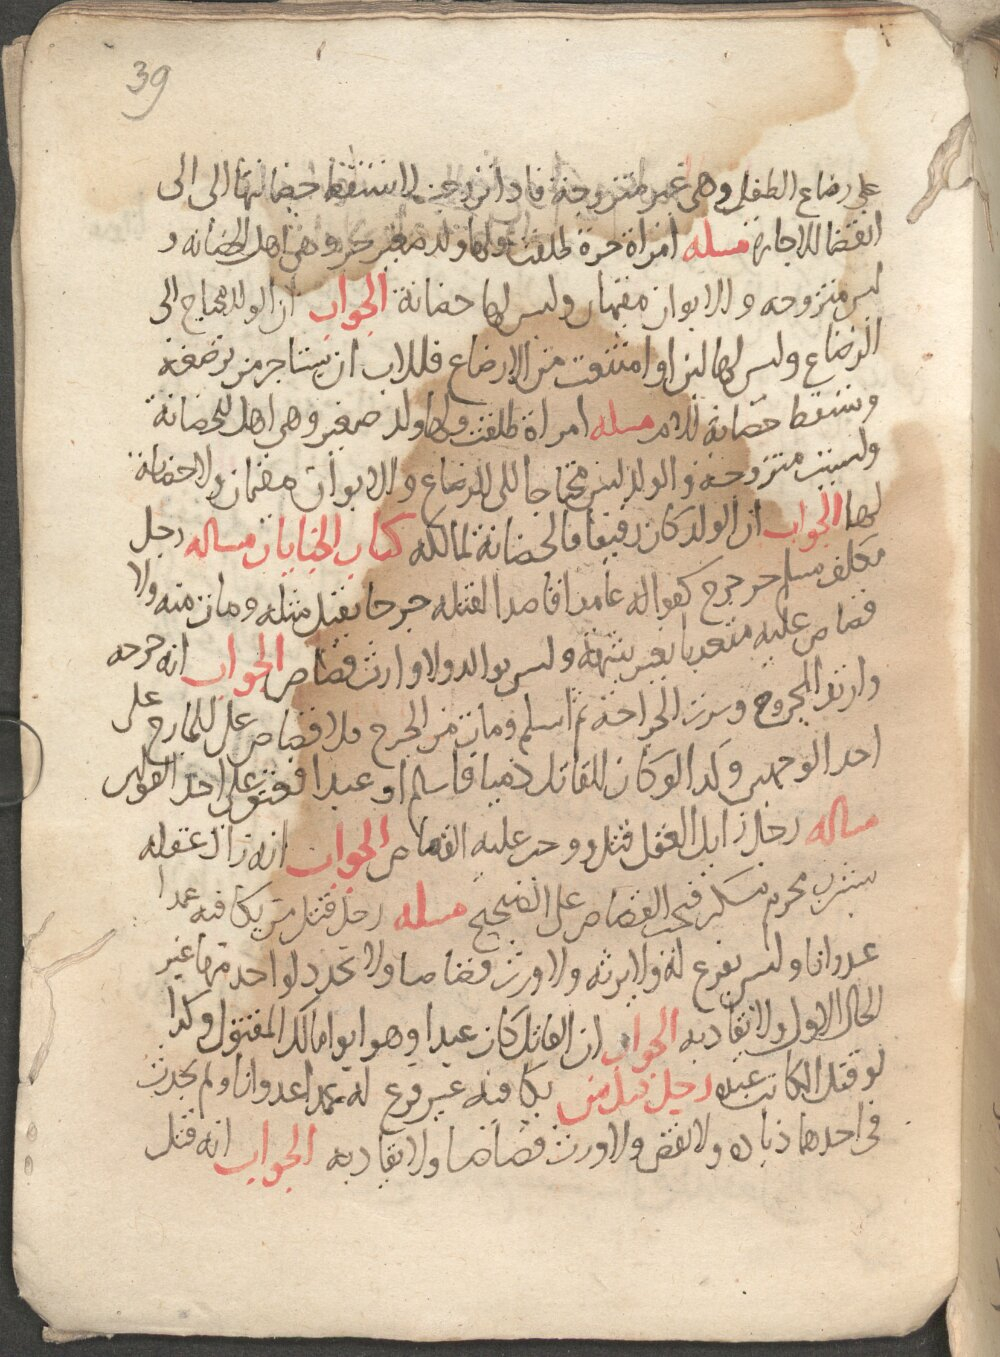 39
على رضاع الطفل وهى غير متزوجة فاذا تزوجت لا تسقط حضانتها الى الى
انقضا للاجارة مسله امراة حرة طلقت ولها ولد صغير حر وهى اهل الحضانه و
ليس متزوجه والابوان مقيمان وليس لها حضانة الجواب ان الولد محتاج الى
الرضاع وليس لها لبن او امتنعت من الارضاع فللاب ان يستاجر من ترضعه
وتسقط حضانة الام مسله امراة طلقت ولها ولد صغير وهى اهل للحضانة
وليست متزوجة والولد ليس محتاجا الى الرضاع والابوان مقيمان ولا حضانة
لها الجواب ان الولد كان رقيقا فالحضانة لمالكه كتاب الجنايات مساله رجل
مكلف مسلم حر جرح كفوا له عامدا قاصدا لقتله جرحا يقتل مثله ومات منه ولا
قصاص عليه متعديا بغير شبهة وليس بوالد ولا وارث قصاص الجواب انه جرحه
وارتد المجروح وسرت الجراحة ثم اسلم ومات من الجرح فلا قصاص على للجارح على
احد الوجهين وكذا لو كان القاتل ذميا فاسلم او عبدا فعتق على احد القولين
مساله رجل زايل العقل قتل ووجب عليه القصاص الجواب انه زال عقله
بشرب محرم مسكر فيجب القصاص على الصحيح مسله رجل قتل من يكافيه عمدا
عدوانا وليس بفرع له ولا يرثه ولا ورث قصاصا ولا تجدد لواحد منهما غير
الحال الاول ولا يقاد به الجواب ان القاتل كان عبدا وهو ابوا مالك المقتول وكذا
لو قتل المكاتب عبده رجل قتل من يكافيه غير فرع له عمدا عدوانا ولم يحدث
فى احدهما زياده ولا نقص ولا ورث قصاصا ولا يقاد به الجواب انه قتل